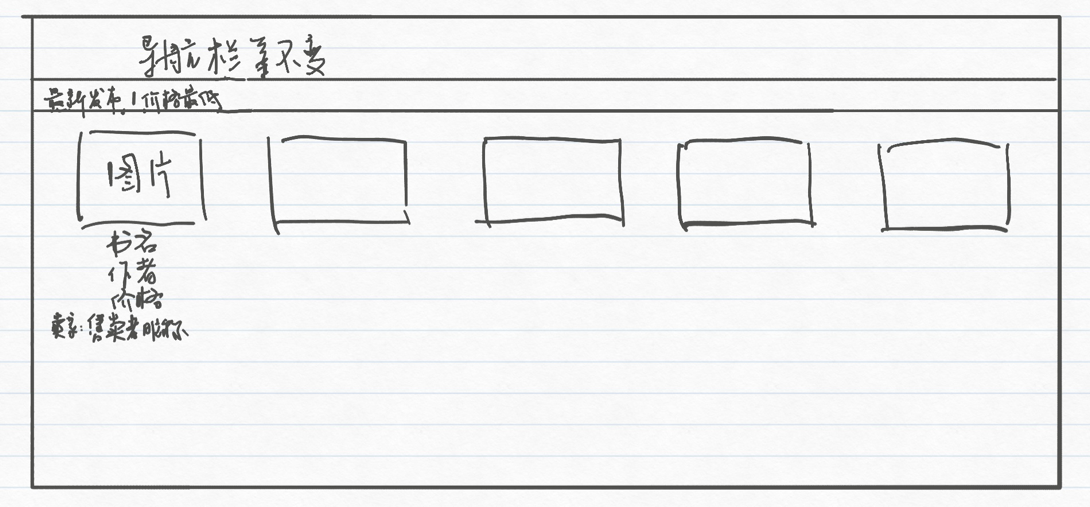 导航栏不变
最新发布 | 价格最低
图片
书名
作者
价格
卖家:售卖者昵称